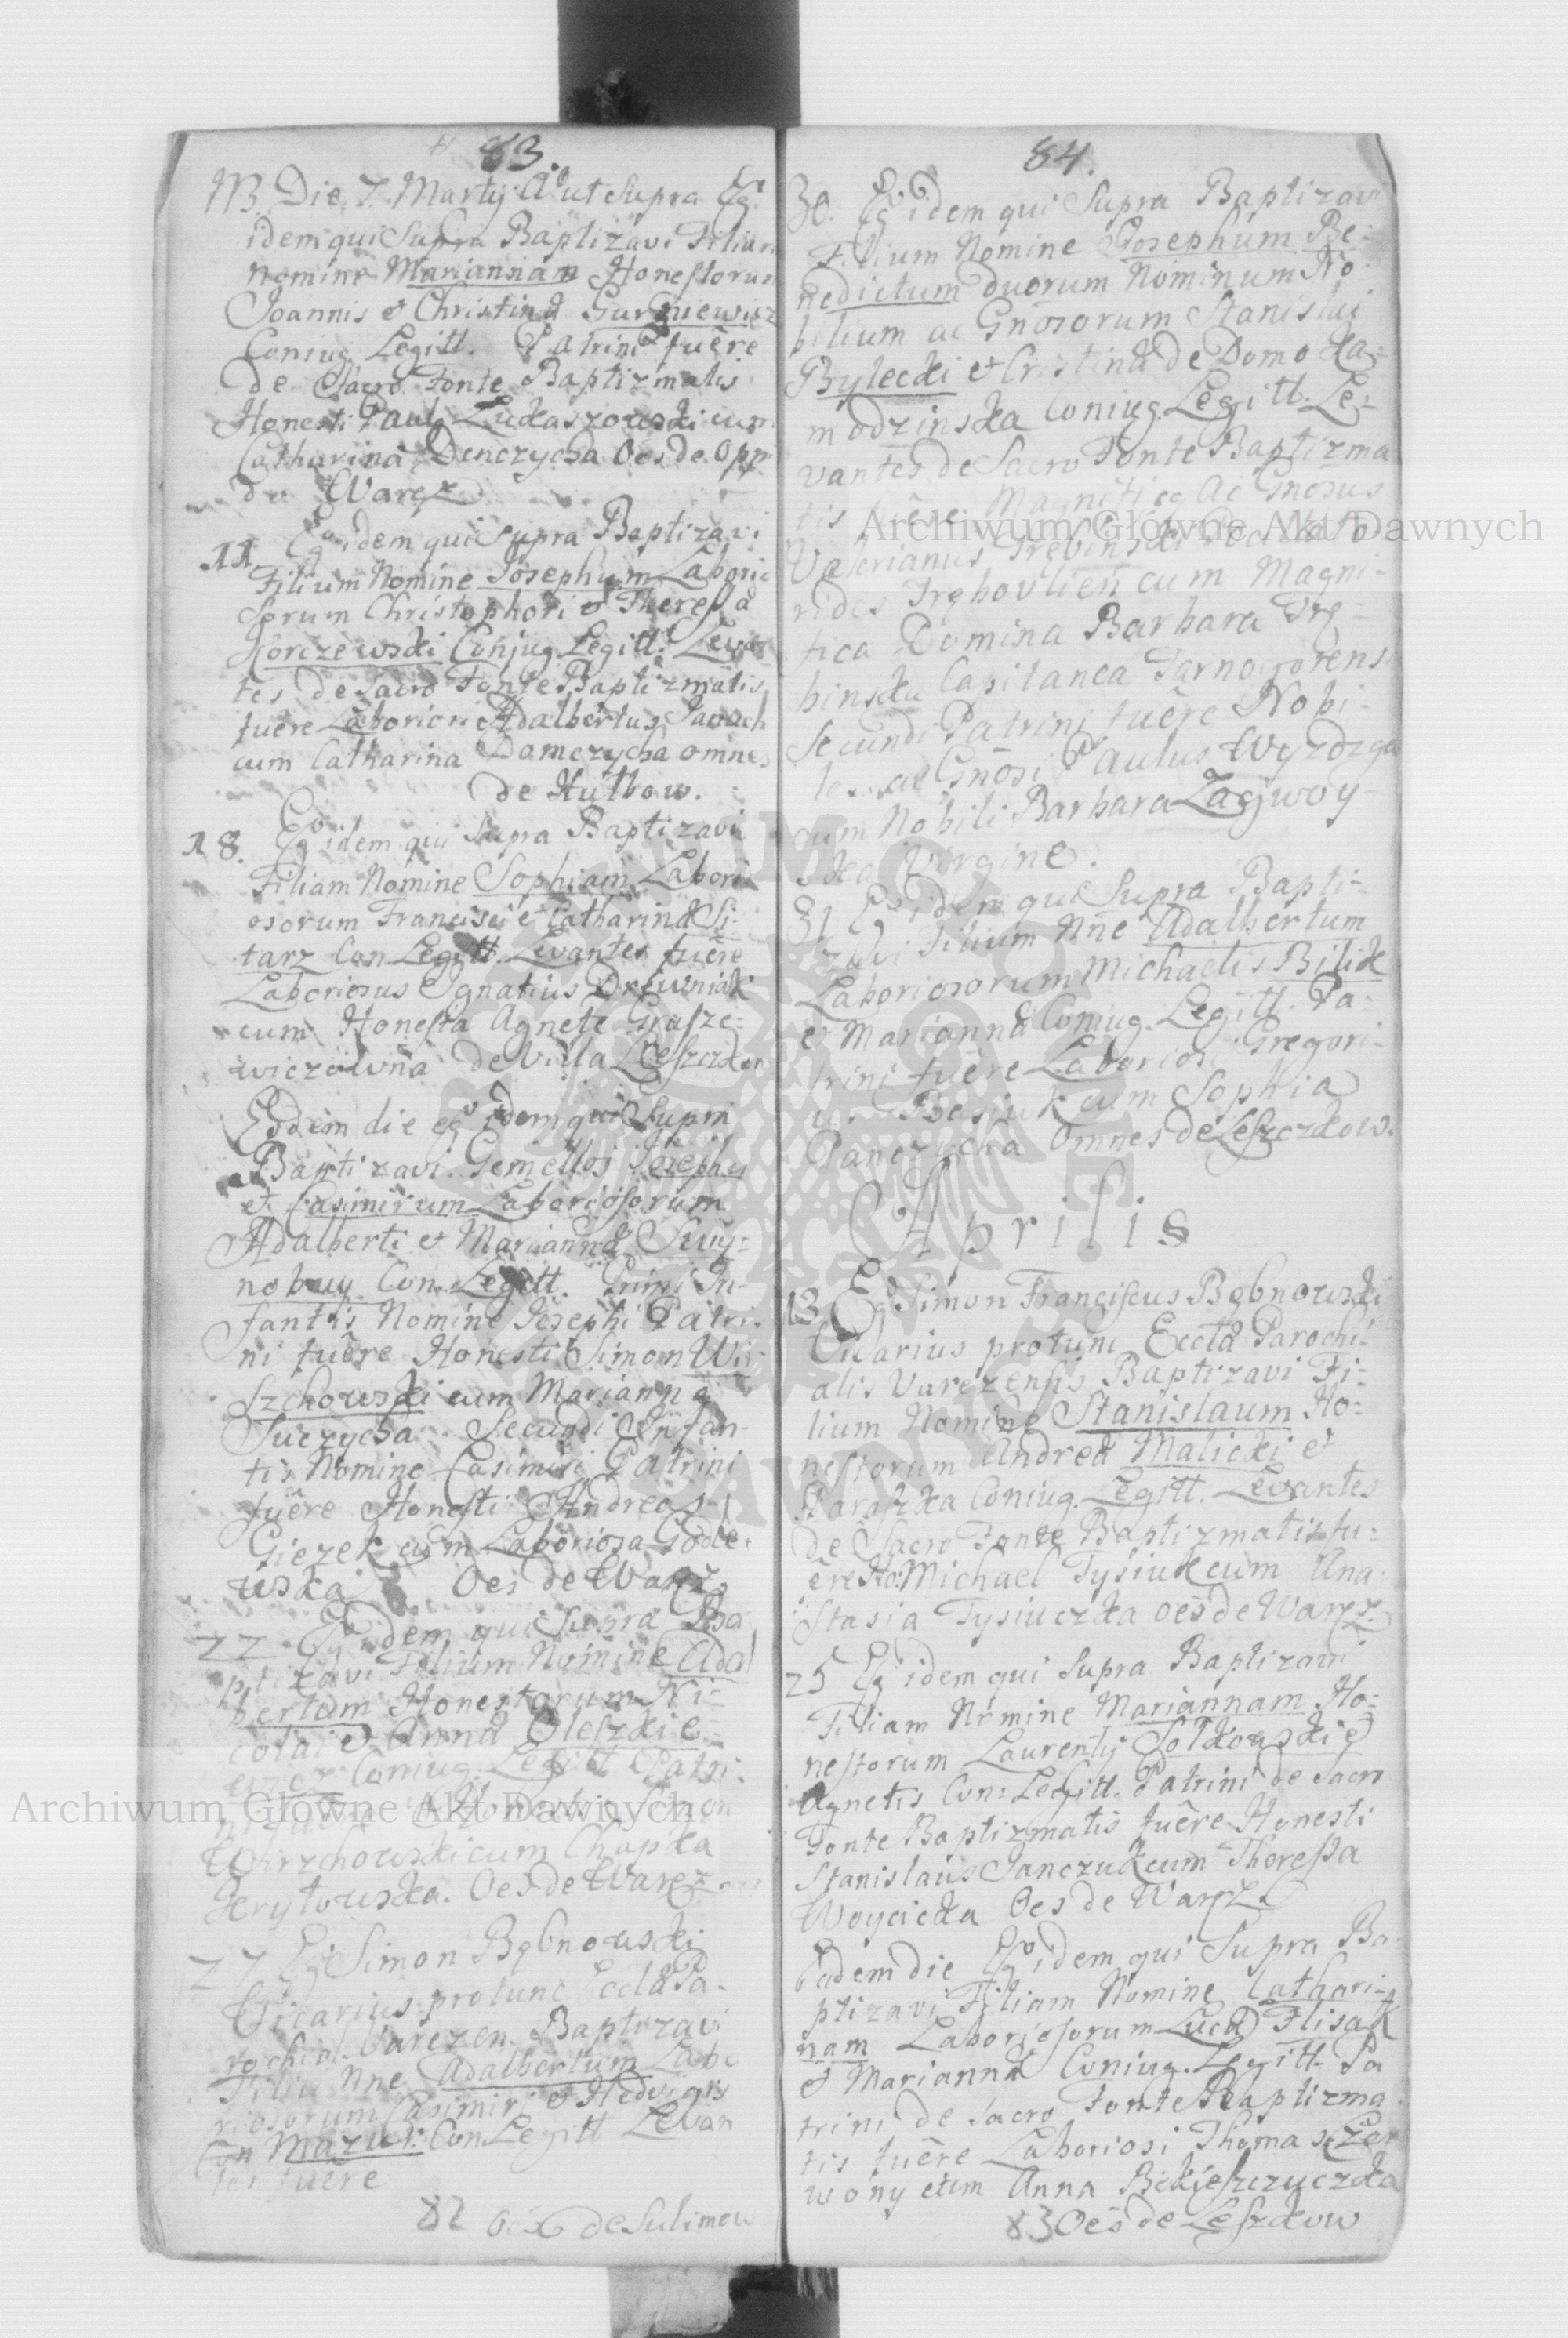 83.
NB Die 7. Martij Aº ut Supra Egº
idem qui Supra Baptizavi Filiam
Nomine Mariannam Honestorum
Joannis et Christinæ Gurgniewicz
Coniug. Legitt. Patrini fuêre
de Sacro Fonte Baptizmatis
Honesti Paul Łukaszowski cum
Catharina Denczycha Oes de Opp
do Waręz
11. Egº idem qui Supra Baptizavi
Filium Nomine Josephum Laborio
sorum Christophori et Theressæ
Korczewski Conjug Legitt. Levan
tes de Sacro Fonte Baptizmatis
fuêre Laboriosi Adalbertus Janach
cum Catharina Damczycha omnes
de Hulbow.
18. Egº idem qui Supra Baptizavi
Filiam Nomine Sophiam Labori
osorum Francisci et Catharinæ Si-
tarz Con Legitt. Levantes fuêre
Laboriosus Ignatius Drewniak
cum Honesta Agnete Grusze-
wiczowna de Villa Leszczkow
Eodem die egº idem qui Supra
Baptizavi Gemellos Josephum
et Casimirum Laboriosorum
Adalberti et Mariannæ
Con. Legitt. Primi In-
fantis Nomine Josephi Patri-
ni fuêre Honesti Simon Wir-
szchowski cum Marianna
Suczycha. Secundi Infan-
tis Nomine Casimiri Patrini
fuêre Honesti Andreas
Giezek cum Laboriosa Godle-
wska Oes de Waręz.
22 Egº idem qui Supra Ba
ptizavi Filium Nomine Adal
bertum Honestorum Ni-
colai et Annæ Oleszkie-
wicz Coniug. Legitt Patri-
ni fuêre Honestus Simon
Wirzchowski cum Chapka
Kerytowska. Oes de Waręz
27 Egº Simon Bębnowski
Vicarius protunc Ecclæ Pa-
rochial. Varezen. Baptizavi
Filiu Nne Adalbertum Labo
riosorum Casimiri et Hedvigis
Con Mazur Con Legitt Levan
tes fuêre
82 Oes de Sulimow
84.
30. Egº idem qui Supra Baptizavi
Filium Nomine Josephum Be-
nedictum duorum Nominum No
bilium ac Gnosorum Stanislai
Bylecki et Cristinæ de Domo Ra-
modzinska Coniug. Legitt. Le-
vantes de Sacro Fonte Baptizma
tis fuêre Magnificg Ac Gnosus
Valerianus Trębinski
rides Tręhovlien cum Magni-
fica Domina Barbara Trę-
binska Capitanca Tarnogorens
Secundi Patrini fuêre Nobi-
les ac Gnosi Paulus Wyzdzga
cum Nobili Barbara Zagwoy
ska Virgine.
31 Egº idem qui Supra Bapti-
zavi Filium Nne Adalbertum
Laboriosorum Michaelis Bilik
et Mariannæ Coniug. Legitt. Pa-
trini fuêre Laboriosi Gregori-
us Basiuk cum Sophia
Panczycha Omnes de Leszczkow.
Aprilis
13 Egº Simon Franciscus Bębnowski
Vicarius protunc Ecclæ Parochi-
alis Varezensis Baptizavi Fi-
lium Nomine Stanislaum Ho-
nestorum Andreæ Malicki et
Paraszka Coniug. Legitt. Levantes
de Sacro Fonte Baptizmatis fu-
êre Ho: Michael Tysiuk cum Ana-
stasia Tysiuczka oes de Waręz.
25 Egº idem qui Supra Baptizavi
Filiam Nomine Mariannam Ho-
nestorum Laurentij Solkowski et
Agnetis Con: Legitt. Patrini de Sacro
Fonte Baptizmatis fuêre Honesti
Stanislaus Janczuk cum Theressa
Woycicka Oes de Waręz.
Eadem die Egº idem qui Supra Ba-
ptizavi Filiam Nomine Cathari-
nam Laboriosorum Lucæ Flisak
et Mariannæ Coniug. Legitt. Pa
trini de Sacro Fonte Baptizma
tis fuêre Laboriosi Thomas Czer
wony cum Anna Bekieszczyczka
83 Oes de Leszkow
Archiwum Główne Akt Dawnych
Archiwum Główne Akt Dawnych